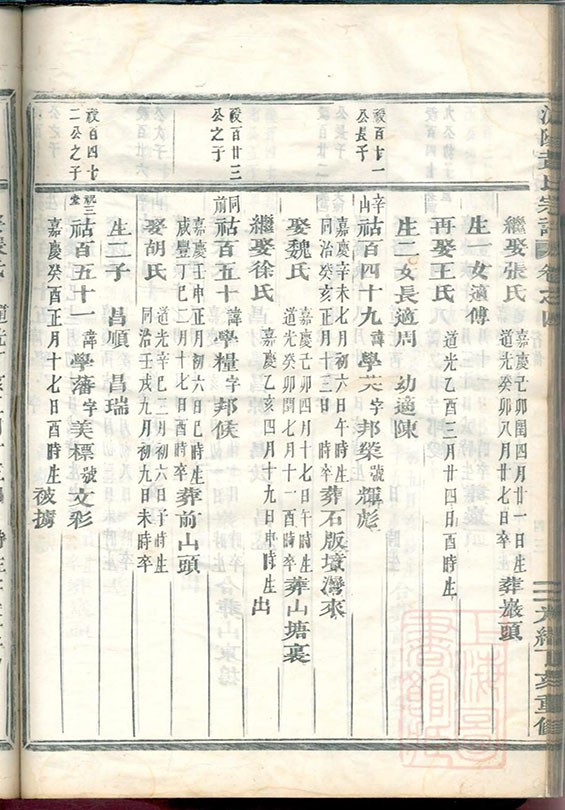 氏宗譜 卷之四
繼娶張氏 嘉慶己卯閏四月廿一日生 道光癸卯八月廿七日卒 葬巖頭
生一女適傅
再娶王氏 道光乙酉三月廿四日酉時生
生二女長適周 幼適陳
祝百十一公長子
辛山 祜百四十九 諱學英字邦榮號輝彪
嘉慶辛未七月初六日午時生 同治癸亥正月十三日 時卒 葬石版墳灣來
娶魏氏 嘉慶己卯四月十七日午時生 道光癸卯閏七月十一酉時卒 葬山塘裏
繼娶徐氏 嘉慶乙亥四月十九日申時生 出
祝百廿三公之子
同前 祜百五十 諱學糧字邦侯
嘉慶壬申正月初六日巳時生 咸豐辛巳二月十七日酉時卒 葬前山頭
娶胡氏 道光辛巳二月初六日子時生 同治壬戌九月初九日未時卒
生二子 昌順 昌瑞
祝百四十二公之子
祜百五十一 諱學藩字美標號文彩
嘉慶癸酉正月十七日酉時生 被擄
光緒丁亥重修